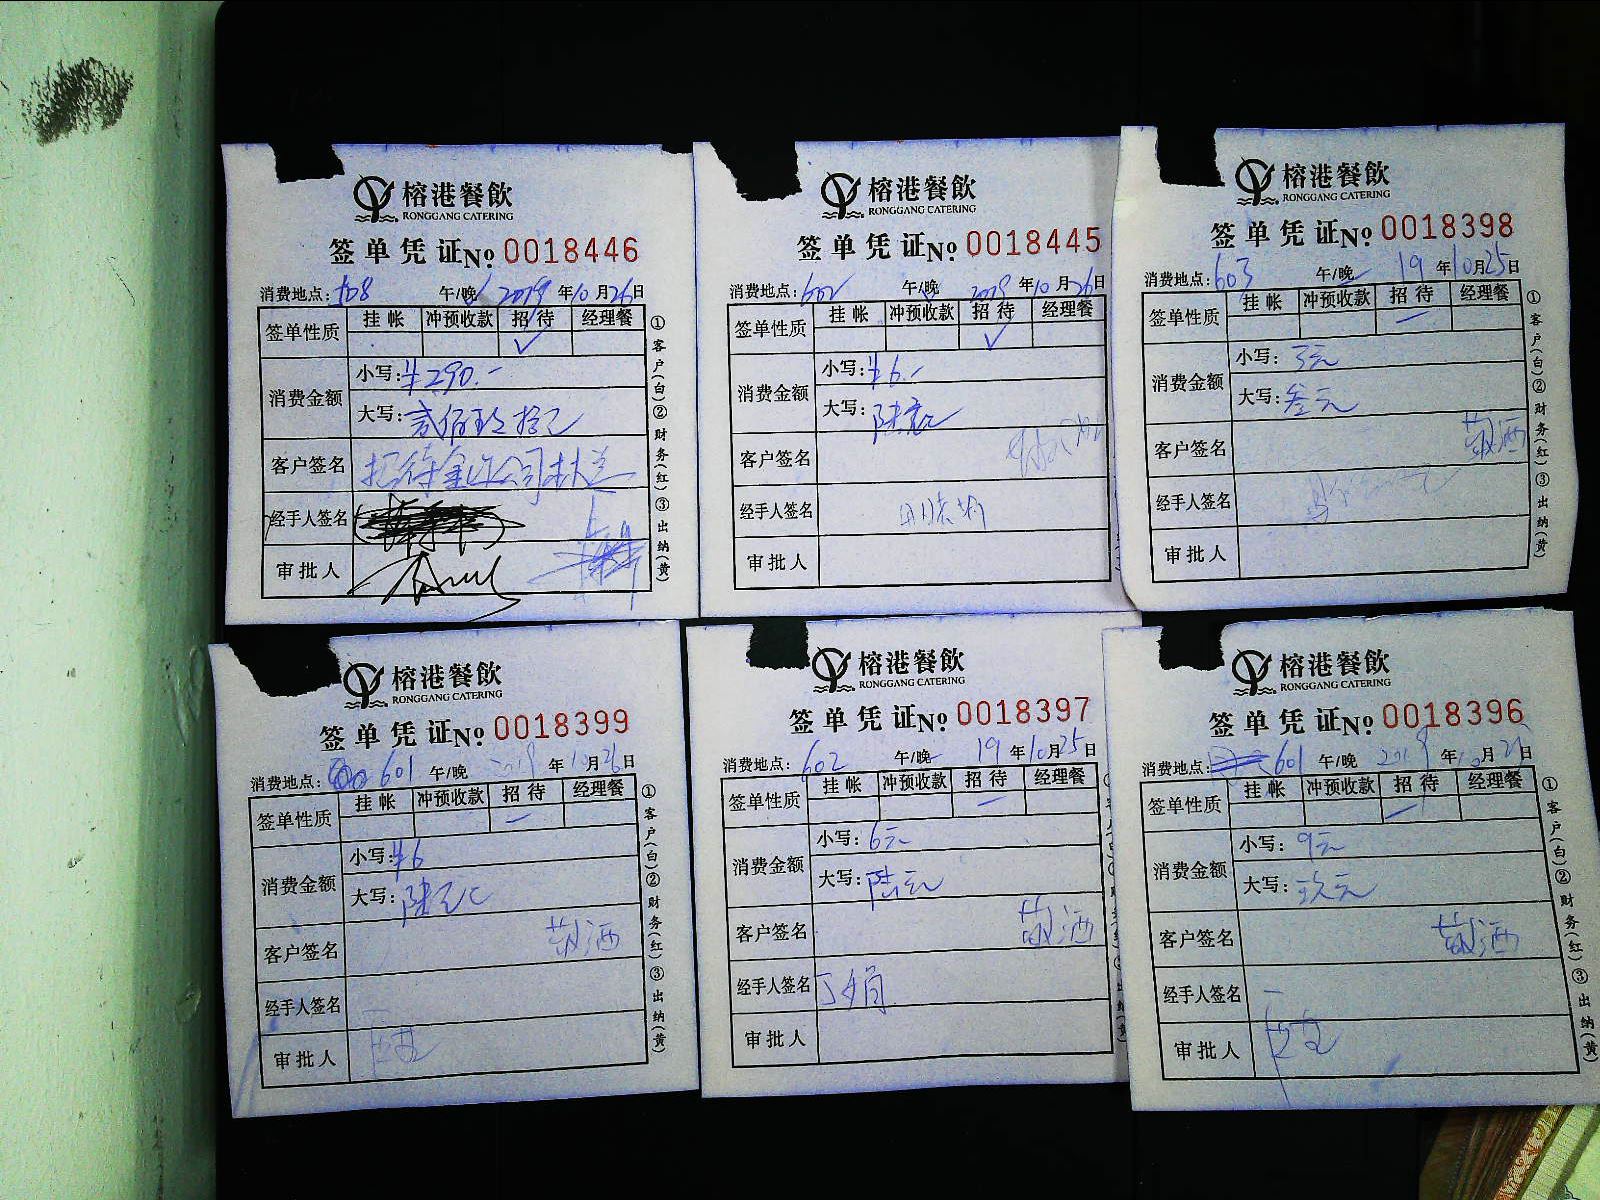 榕港餐飲
RONGGANG CATERING
签单凭证 No 0018446
消费地点: 108 午/晚 2019年10月26日
签单性质 挂帐 冲预收款 招待 经理餐
✓
消费金额 小写: ¥290.-
大写: 贰佰玖拾元
客户签名 招待 公司
经手人签名
审批人
①客户(白)②财务(红)③出纳(黄)
榕港餐飲
RONGGANG CATERING
签单凭证 No 0018445
消费地点: 602 午/晚 2019年10月26日
签单性质 挂帐 冲预收款 招待 经理餐
✓
消费金额 小写: ¥6.-
大写: 陆元
客户签名
经手人签名
审批人
榕港餐飲
RONGGANG CATERING
签单凭证 No 0018398
消费地点: 603 午/晚 19年10月25日
签单性质 挂帐 冲预收款 招待 经理餐
消费金额 小写: 3元
大写: 叁元
客户签名 敬酒
经手人签名
审批人
①客户(白)②财务(红)③出纳(黄)
榕港餐飲
RONGGANG CATERING
签单凭证 No 0018399
消费地点: 601 午/晚 2019年10月26日
签单性质 挂帐 冲预收款 招待 经理餐
消费金额 小写: ¥6
大写: 陆元
客户签名 敬酒
经手人签名
审批人
①客户(白)②财务(红)③出纳(黄)
榕港餐飲
RONGGANG CATERING
签单凭证 No 0018397
消费地点: 602 午/晚 19年10月25日
签单性质 挂帐 冲预收款 招待 经理餐
消费金额 小写: 6元
大写: 陆元
客户签名 敬酒
经手人签名 丁娟
审批人
榕港餐飲
RONGGANG CATERING
签单凭证 No 0018396
消费地点: 601 午/晚 2019年10月日
签单性质 挂帐 冲预收款 招待 经理餐
消费金额 小写: 9元
大写: 玖元
客户签名 敬酒
经手人签名
审批人
①客户(白)②财务(红)③出纳(黄)